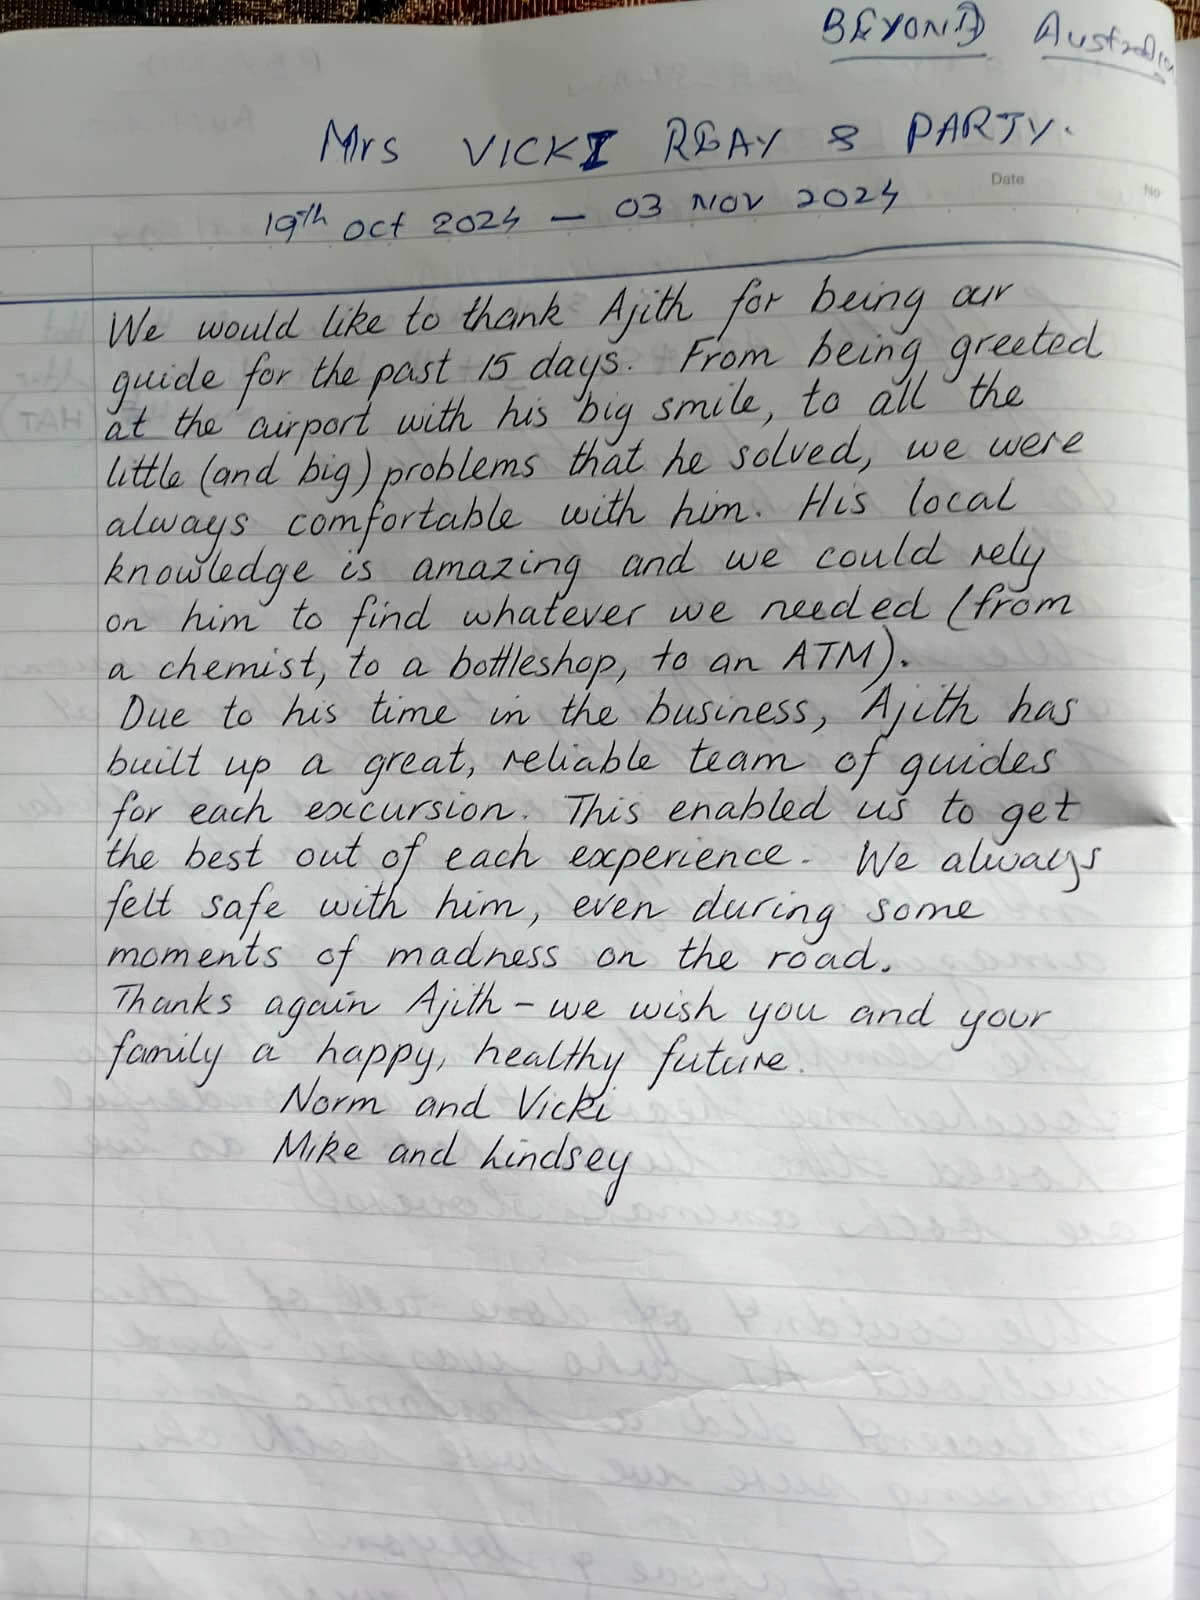 BEYOND Australia
Mrs VICKI REAY & PARTY.
Date
No
19th Oct 2024 — 03 NOV 2024
We would like to thank Ajith for being our
guide for the past 15 days. From being greeted
at the airport with his big smile, to all the
little (and big) problems that he solved, we were
always comfortable with him. His local
knowledge is amazing and we could rely
on him to find whatever we needed (from
a chemist, to a bottleshop, to an ATM).
Due to his time in the business, Ajith has
built up a great, reliable team of guides
for each excursion. This enabled us to get
the best out of each experience. We always
felt safe with him, even during some
moments of madness on the road.
Thanks again Ajith – we wish you and your
family a happy, healthy future.
Norm and Vicki
Mike and Lindsey